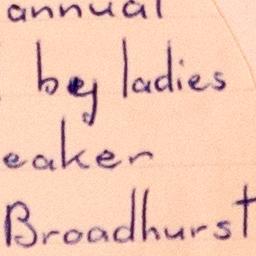 annual
by ladies
eaker
Broadhurst